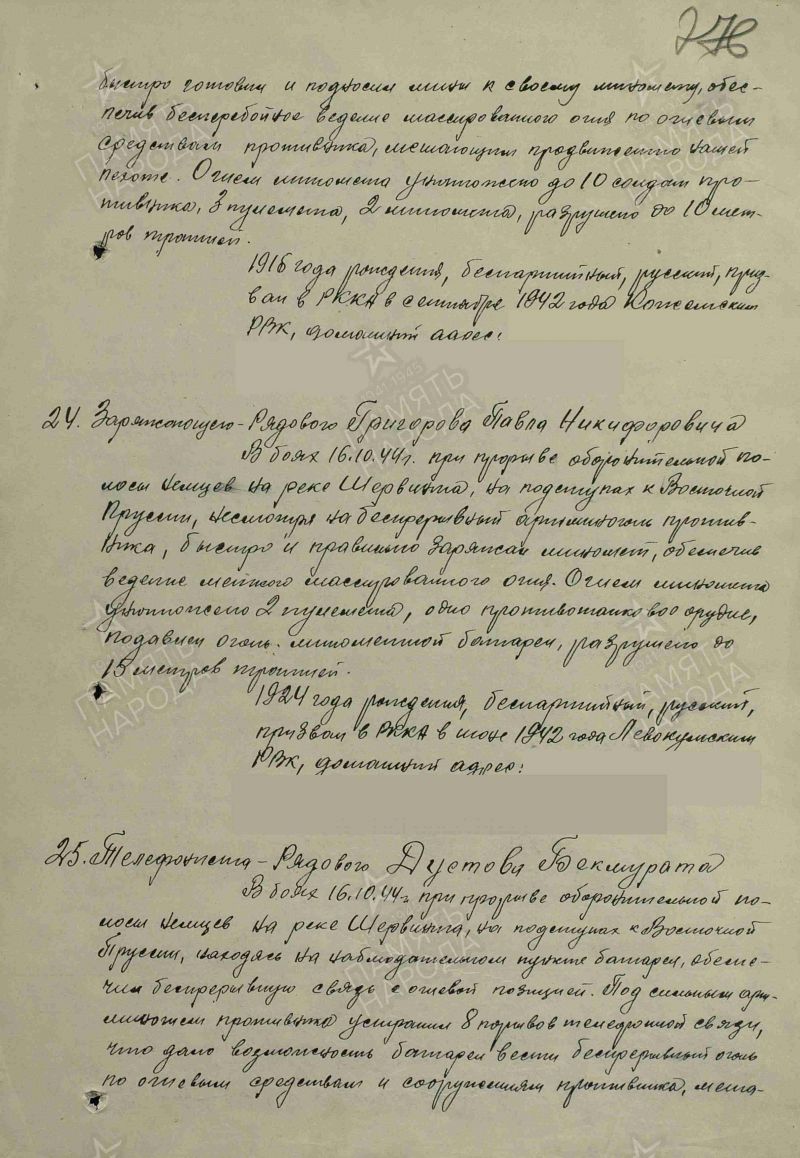 276
быстро готовил и подносил мины к своему миномету, обес-
печив бесперебойное ведение массированного огня по огневым
средствам противника, мешающим продвижению нашей
пехоте. Огнем миномета уничтожено до 10 солдат про-
тивника, 3 пулемета, 2 миномета, разрушено до 10 мет-
ров траншей.
1916 года рождения, беспартийный, русский, приз-
ван в РККА в сентябре 1942 года
РВК, домашний адрес:
24. Заряжающего - Рядового Григорова Павла Никифоровича
В боях 16.10.44г. при прорыве оборонительной по-
лосы немцев на реке Шервинта, на подступах к Восточной
Пруссии, несмотря на беспрерывный артминогонь против-
ника, быстро и правильно заряжал миномет, обеспечив
ведение меткого массированного огня. Огнем миномета
уничтожено 2 пулемета, одно противотанковое орудие,
подавлен огонь минометной батареи, разрушено до
15 метров траншей.
1924 года рождения, беспартийный, русский,
призван в РККА в июне 1942 года Левокумским
РВК, домашний адрес:
25. Телефониста - Рядового Дустова Бекмурата
В боях 16.10.44г. при прорыве оборонительной по-
лосы немцев на реке Шервинта, на подступах к Восточной
Пруссии, находясь на наблюдательном пункте батареи, обеспе-
чил беспрерывную связь с огневой позицией. Под сильным арт-
миногнем противника устранил 8 порывов телефонной связи,
что дало возможность батарее вести беспрерывный огонь
по огневым средствам и сооружениям противника, меша-
ПАМЯТЬ НАРОДА
1941 1945
ПАМЯТЬ
НАРОДА
ПАМЯТЬ
НАРОДА
ПАМЯТЬ
НАРОДА